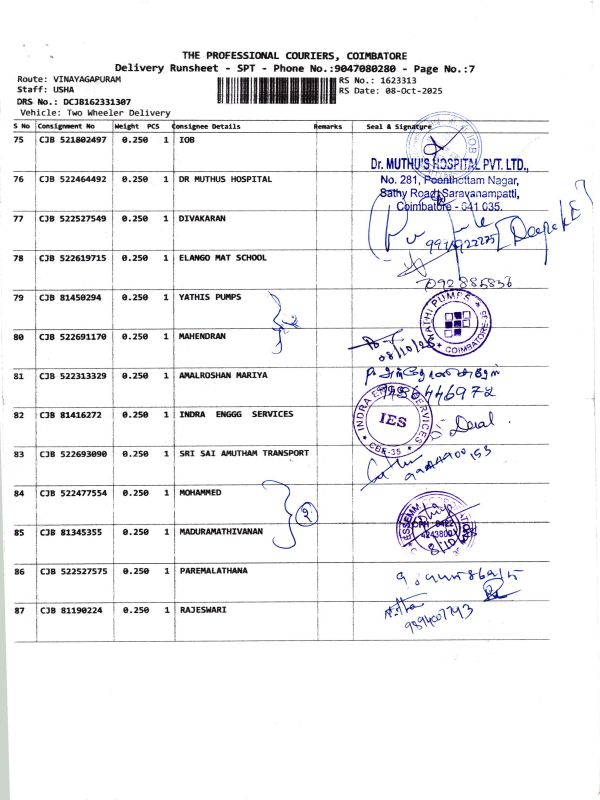 THE PROFESSIONAL COURIERS, COIMBATORE
Delivery Runsheet - SPT - Phone No.:9047080280 - Page No.:7
Route: VINAYAGAPURAM
RS No.: 1623313
Staff: USHA
RS Date: 08-Oct-2025
DRS No.: DCJB162331307
Vehicle: Two Wheeler Delivery
S No Consignment No Weight PCS Consignee Details Remarks Seal & Signature
75 CJB 521802497 0.250 1 IOB
IOB
Dr. MUTHU'S HOSPITAL PVT. LTD.,
76 CJB 522464492 0.250 1 DR MUTHUS HOSPITAL
No. 281, Poonthottam Nagar,
Sathy Road, Saravanampatti,
Coimbatore - 641 035.
77 CJB 522527549 0.250 1 DIVAKARAN
78 CJB 522619715 0.250 1 ELANGO MAT SCHOOL
79 CJB 81450294 0.250 1 YATHIS PUMPS
YATHI PUMPS
COIMBATORE-35
80 CJB 522691170 0.250 1 MAHENDRAN
08/10/25
81 CJB 522313329 0.250 1 AMALROSHAN MARIYA
82 CJB 81416272 0.250 1 INDRA ENGGG SERVICES
IES
CBE-35
83 CJB 522693090 0.250 1 SRI SAI AMUTHAM TRANSPORT
84 CJB 522477554 0.250 1 MOHAMMED
85 CJB 81345355 0.250 1 MADURAMATHIVANAN
86 CJB 522527575 0.250 1 PAREMALATHANA
87 CJB 81190224 0.250 1 RAJESWARI
9894007743